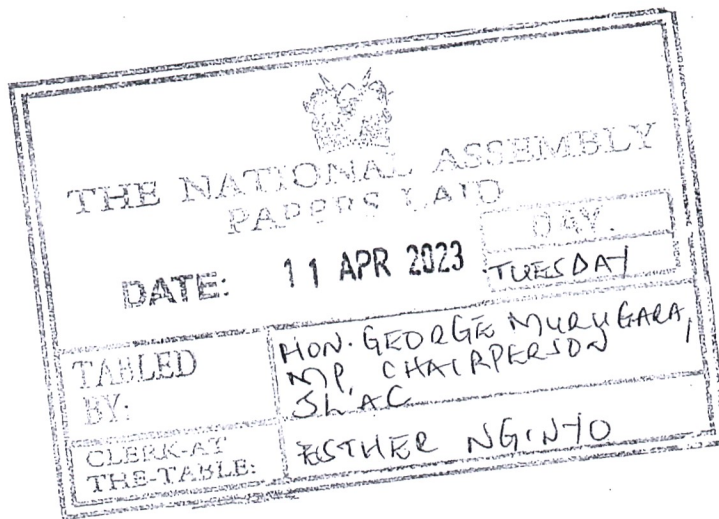 THE NATIONAL ASSEMBLY
PAPERS LAID
DAY.
DATE: 11 APR 2023 TUESDAY
TABLED
BY:
HON. GEORGE MURUGARA,
MP, CHAIRPERSON
JLAC
CLERK-AT
THE-TABLE:
ESTHER NGINYO